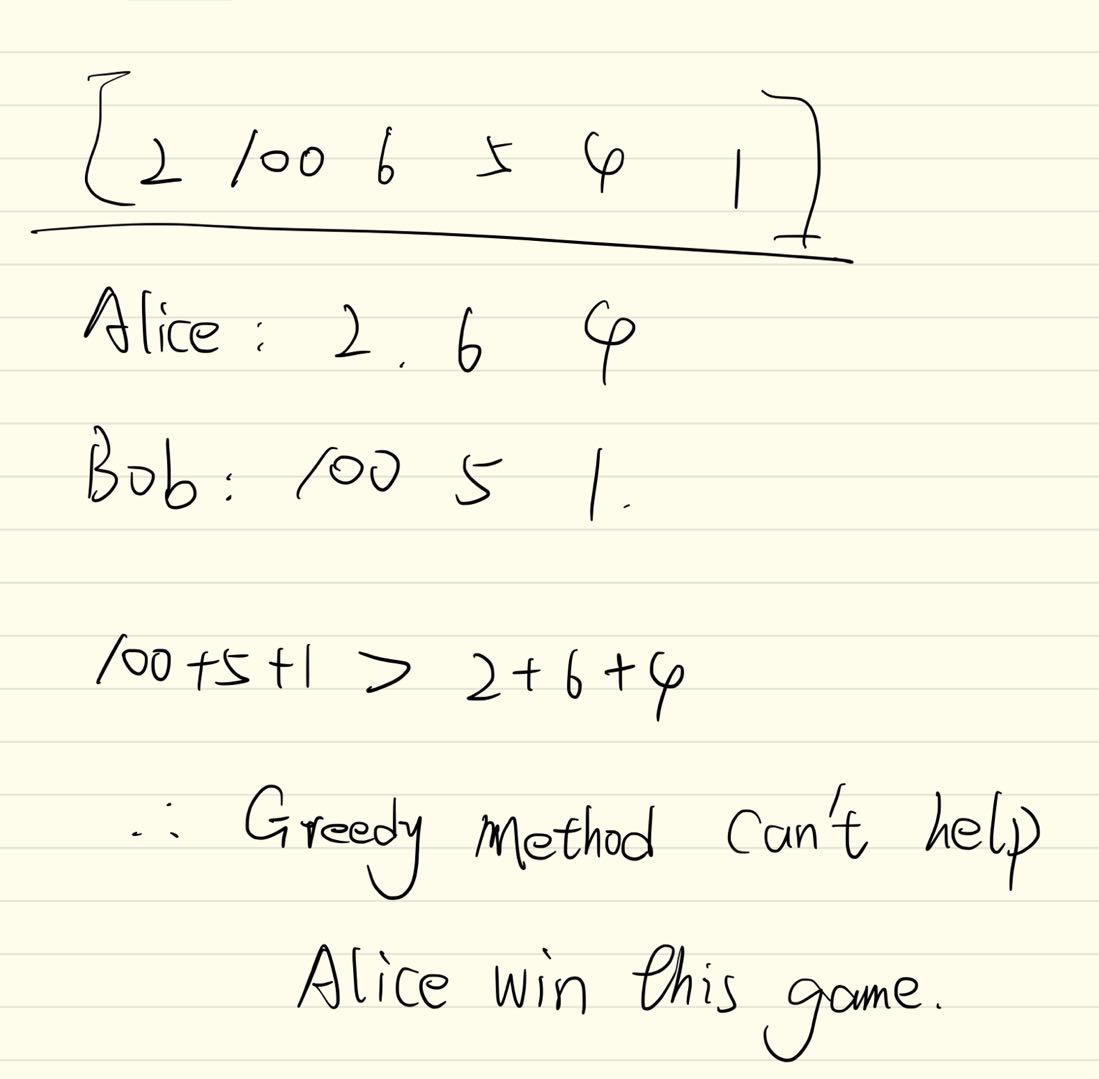 [2 100 6 5 4 1]
Alice: 2. 6 4
Bob: 100 5 1.
100+5+1 > 2+6+4
∴ Greedy Method can't help
Alice win this game.